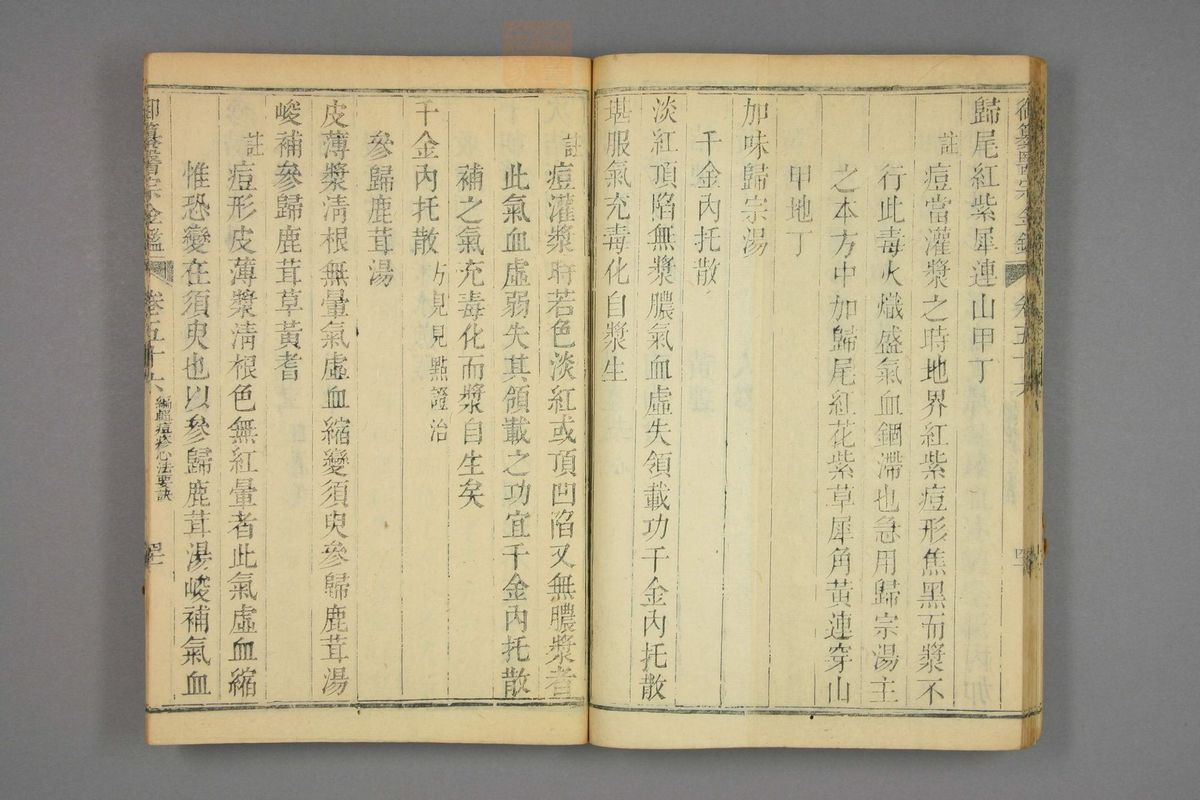 御纂醫宗金鑑 卷五十六
歸尾紅紫犀連山甲丁
註痘當灌漿之時地界紅紫痘形焦黑而漿不
行此毒火熾盛氣血錮滯也急用歸宗湯主
之本方中加歸尾紅花紫草犀角黃連穿山
甲地丁
加味歸宗湯
千金內托散
淡紅頂陷無漿膿氣血虛失領載功千金內托散
堪服氣充毒化自漿生
註痘灌漿時若色淡紅或頂凹陷又無膿漿者
此氣血虛弱失其領載之功宜千金內托散
補之氣充毒化而漿自生矣
千金內托散方見見點證治
參歸鹿茸湯
皮薄漿清根無暈氣虛血縮變須臾參歸鹿茸湯
峻補參歸鹿茸草黃耆
註痘形皮薄漿清根色無紅暈者此氣虛血縮
惟恐變在須臾也以參歸鹿茸湯峻補氣血
御纂醫宗金鑑 卷五十六 編輯痘疹心法要訣